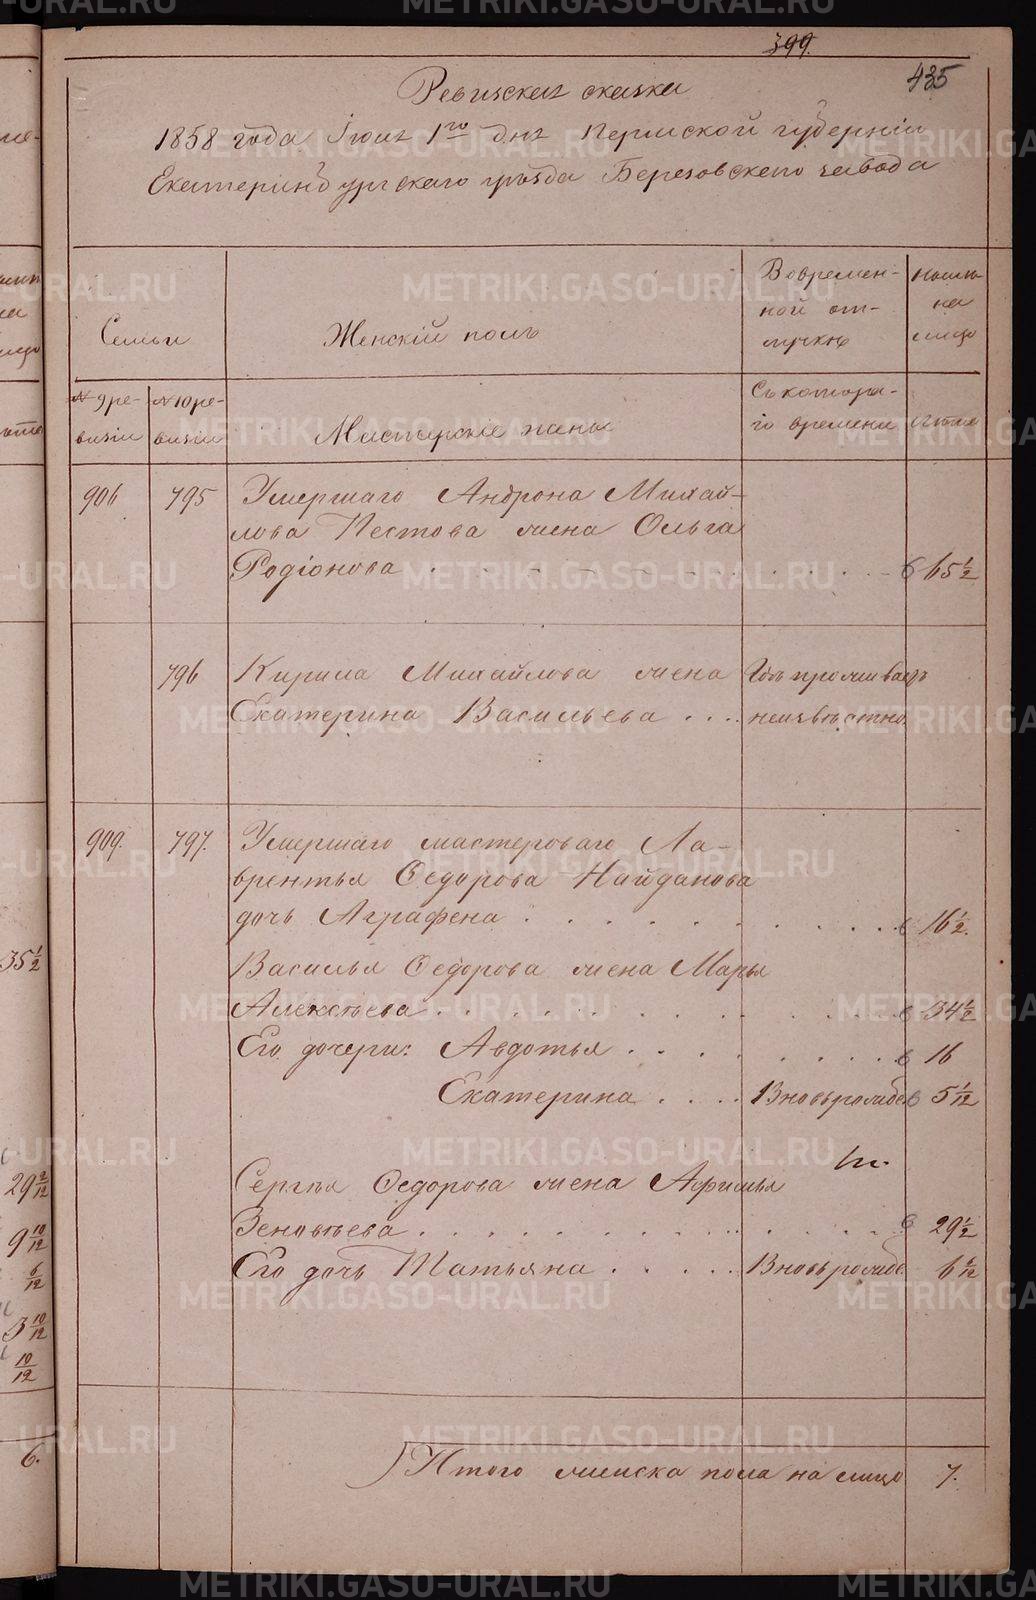 399.
435
Ревизская сказка
1858 года Iюня 1го дня Пермской губернiи
Екатеринбургскаго уѣзда Березовскаго завода
Семьи
Женскiй полъ
Во времен-
ной от-
лучкѣ
Налицо
№ 9 ре-
визiи
№ 10 ре-
визiи
Мастерскiе жены
Съ котора-
го времени
Лѣта
906 795 Умершаго Андрона Михай-
лова Пестова жена Ольга
Родiонова 65 1/2
796 Кирила Михайлова жена Гдѣ проживаетъ
Екатерина Васильева неизвѣстно.
909. 797. Умершаго мастероваго Ла-
врентья Ѳедорова Найданова
дочь Аграфена 16 1/2.
Василья Ѳедорова жена Марья
Алексѣева 34 1/2
Его дочери: Авдотья 16
Екатерина Вновьрожде 5/12
Сергѣя Ѳедорова жена Афимья
Зеновѣева 29 1/2
Его дочь Татьяна Вновьрожде 6/12
Итого женска пола на лицо 7.
35 1/2
29 2/12
9 10/12
6/12
3 10/12
10/12
6.
METRIKI.GASO-URAL.RU